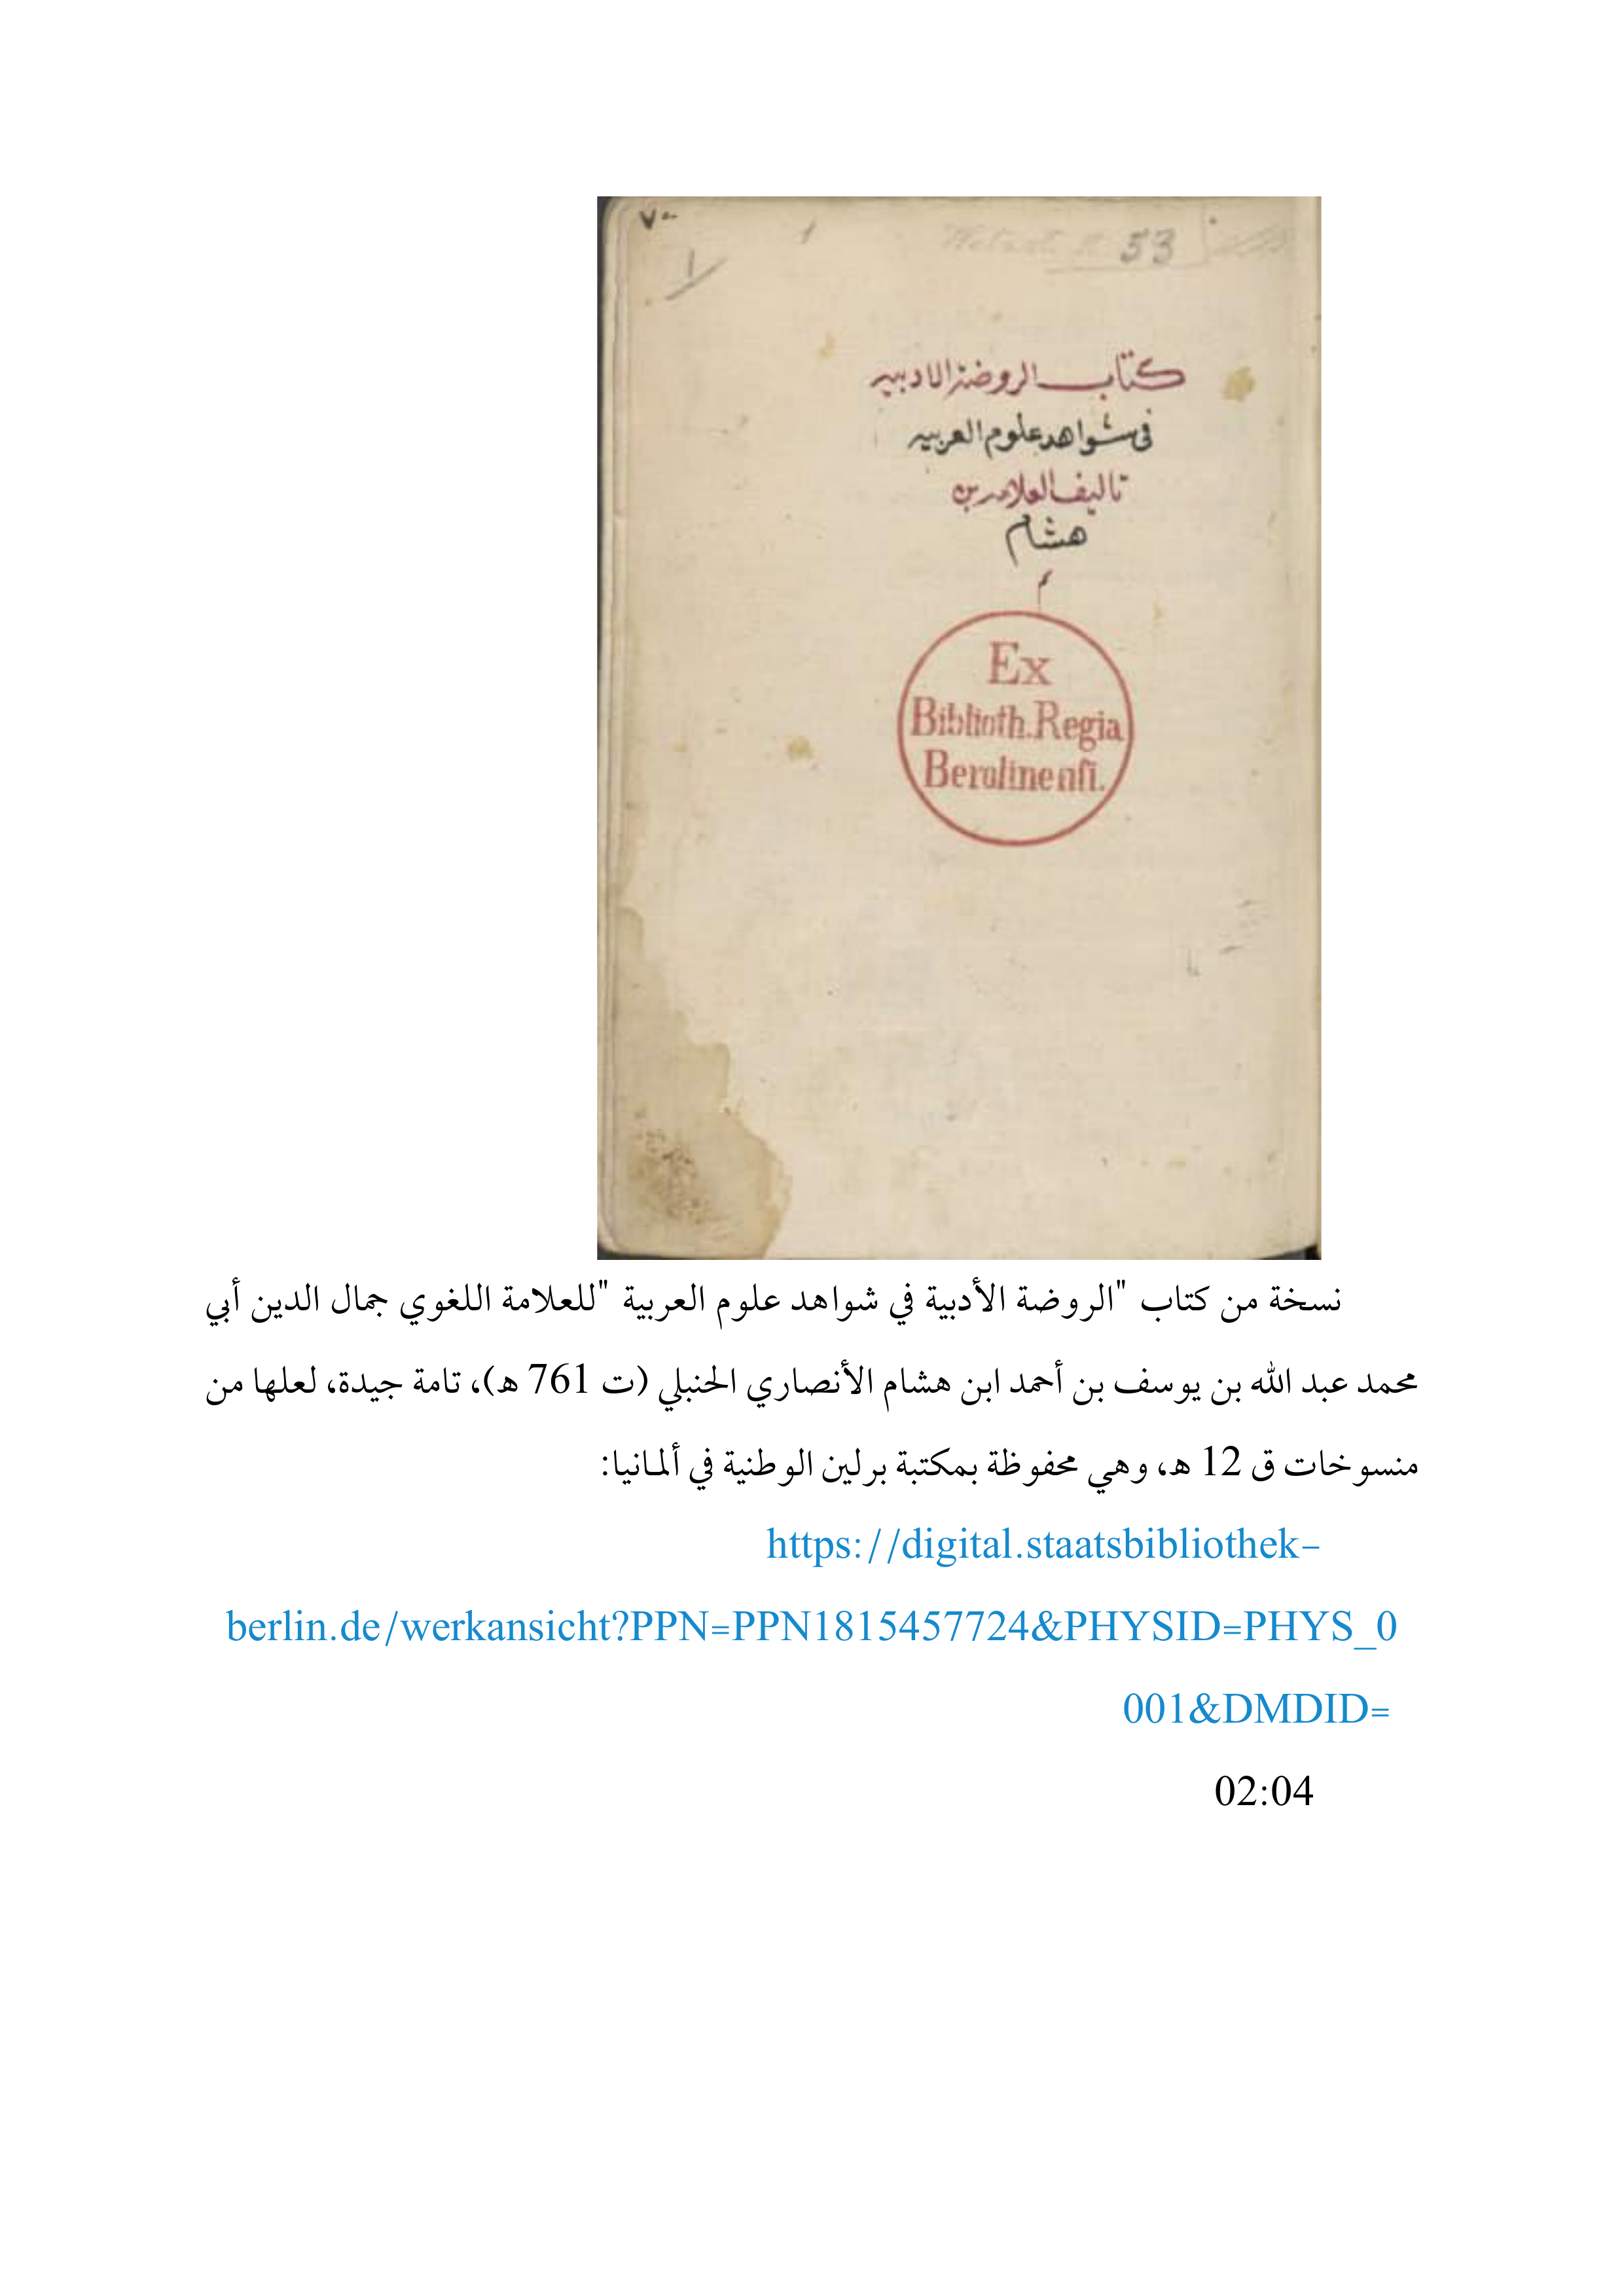 ٧٠
١
1
53
كتاب الروضة الادبيه
فى شواهد علوم العربيه
تاليف العلامه بن
هشام
م
Ex
Biblioth. Regia
Berolinensi.
نسخة من كتاب "الروضة الأدبية في شواهد علوم العربية "للعلامة اللغوي جمال الدين أبي
محمد عبد الله بن يوسف بن أحمد ابن هشام الأنصاري الحنبلي (ت 761 ه)، تامة جيدة، لعلها من
منسوخات ق 12 ه، وهي محفوظة بمكتبة برلين الوطنية في ألمانيا:
https://digital.staatsbibliothek-
berlin.de/werkansicht?PPN=PPN1815457724&PHYSID=PHYS_0
001&DMDID=
02:04